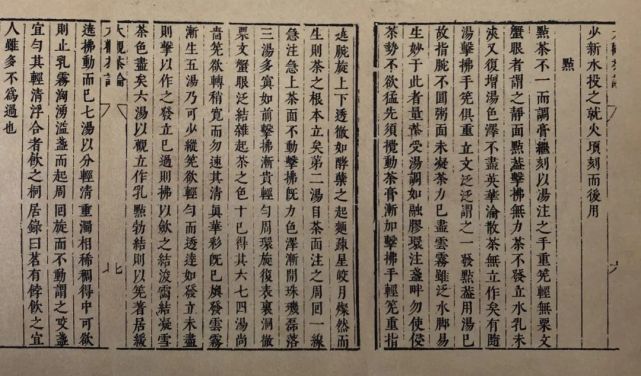 少新水投之就火頃刻而後用
點
點茶不一而調膏繼刻以湯注之手重筅輕無粟文
蟹眼者謂之靜面點蓋擊拂無力茶不發立水乳未
浹又復增湯色澤不盡英華淪散茶無立作矣有隨
湯擊拂手筅俱重立文泛泛謂之一發點蓋用湯已
故指腕不圓粥面未凝茶力已盡雲霧雖泛水腳易
生妙于此者量茶受湯調如融膠環注盞畔勿使侵
茶勢不欲猛先須攪動茶膏漸加擊拂手輕筅重指
遶腕旋上下透徹如酵蘗之起麵疎星皎月燦然而
生則茶之根本立矣第二湯自茶面注之周回一線
急注急上茶面不動擊拂既力色澤漸開珠璣磊落
三湯多寡如前擊拂漸貴輕勻周環旋復表裏洞徹
粟文蟹眼泛結雜起茶之色十已得其六七四湯尚
嗇筅欲轉稍寬而勿速其清真華彩既已煥發雲霧
漸生五湯乃可少縱筅欲輕勻而透達如發立未盡
則擊以作之發立已過則拂以斂之結浚靄結凝雪
茶色盡矣六湯以觀立作乳點勃結則以筅著居緩
大觀茶論
遶拂動而已七湯以分輕清重濁相稀稠得中可欲
則止乳霧洶湧溢盞而起周回旋而不動謂之咬盞
宜勻其輕清浮合者飲之桐居錄曰茗有餑飲之宜
人雖多不為過也